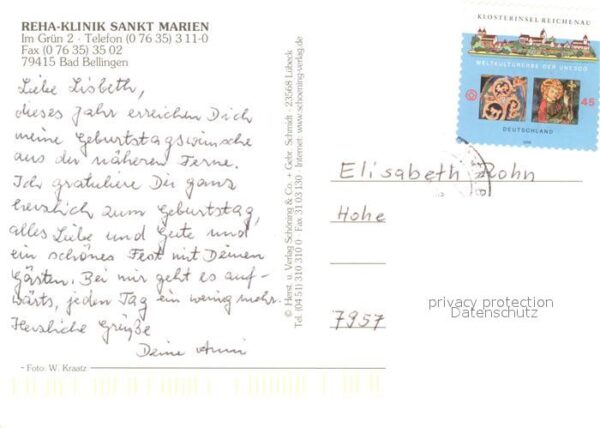 REHA-KLINIK SANKT MARIEN
Im Grün 2 · Telefon (0 76 35) 3 11-0
Fax (0 76 35) 35 02
79415 Bad Bellingen
Liebe Lisbeth,
dieses Jahr erreichen Dich
meine Geburtstagswünsche
aus der näheren Ferne.
Ich gratuliere Dir ganz
herzlich zum Geburtstag,
alles Liebe und Gute und
ein schönes Fest mit Deinen
Gästen. Bei mir geht es auf-
wärts, jeden Tag ein wenig mehr.
Herzliche Grüße
Deine Anni
Foto: W. Kraatz
© Herst. u. Verlag Schöning & Co. + Gebr. Schmidt · 23568 Lübeck
Tel. (04 51) 310 310 0 · Fax 31 03 130 · Internet: www.schoening-verlag.de
KLOSTERINSEL REICHENAU
WELTKULTURERBE DER UNESCO
45
DEUTSCHLAND
Elisabeth Rohn
Hohe
7957
privacy protection
Datenschutz